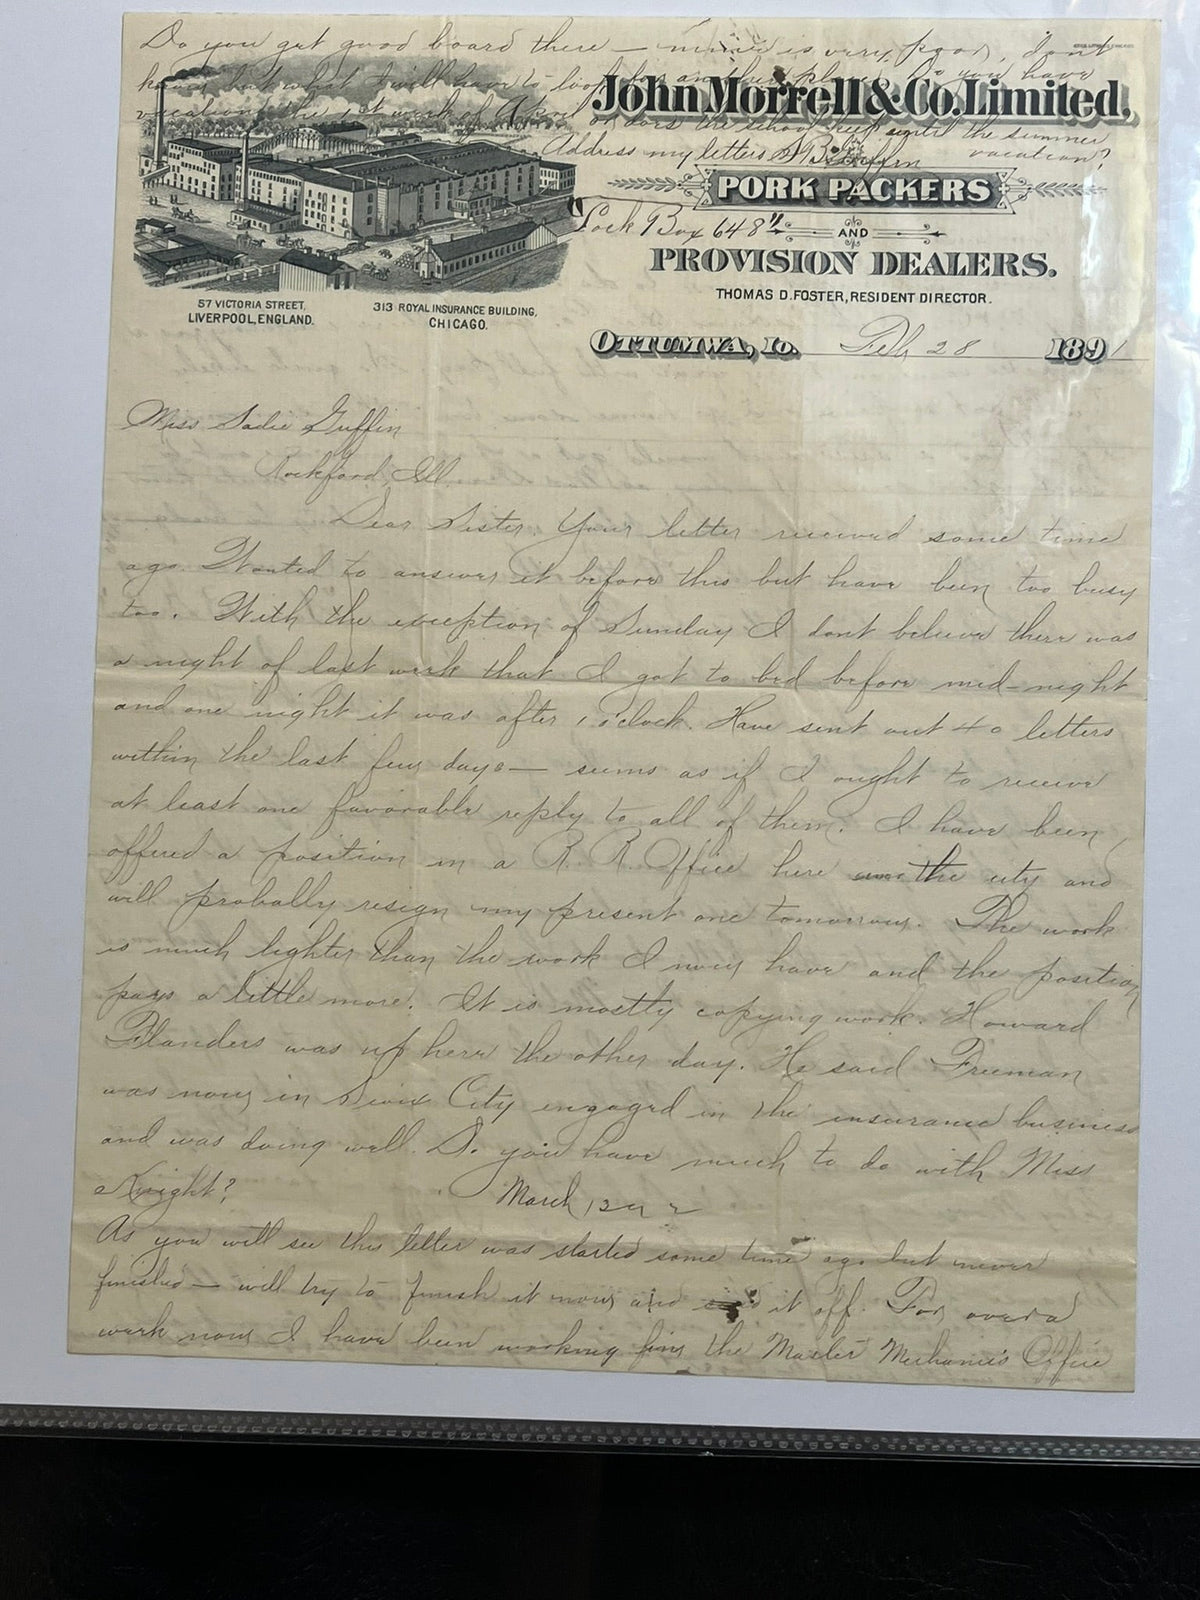 Do you get good board there — mine is very poor, dont
know but what I will have to look for another place. Do you have
vacation the 1st week of April or does the school keep until the summer
vacation?
Address my letters
Lock Box 648
John Morrell & Co. Limited.
PORK PACKERS
AND
PROVISION DEALERS.
THOMAS D. FOSTER, RESIDENT DIRECTOR.
57 VICTORIA STREET,
LIVERPOOL, ENGLAND.
313 ROYAL INSURANCE BUILDING,
CHICAGO.
OTTUMWA, Io. Feb 28 1891
Miss Sadie Guffin
Rockford, Ill.
Dear Sister. Your letter received some time
ago. Wanted to answer it before this but have been too busy
too. With the exception of Sunday I dont believe there was
a night of last week that I got to bed before mid-night
and one night it was after 1 o'clock. Have sent out 40 letters
within the last few days — seems as if I ought to receive
at least one favorable reply to all of them. I have been
offered a position in a R. R. Office here the city and
will probably resign my present one tomorrow. The work
is much lighter than the work I now have and the position
pays a little more. It is mostly copying work. Howard
Flanders was up here the other day. He said Freeman
was now in Sioux City engaged in the insurance business
and was doing well. Do you have much to do with Miss
Knight?
March
As you will see this letter was started some time ago but never
finished — will try to finish it now and it off. For over a
week now I have been working in the Master Mechanic's Office